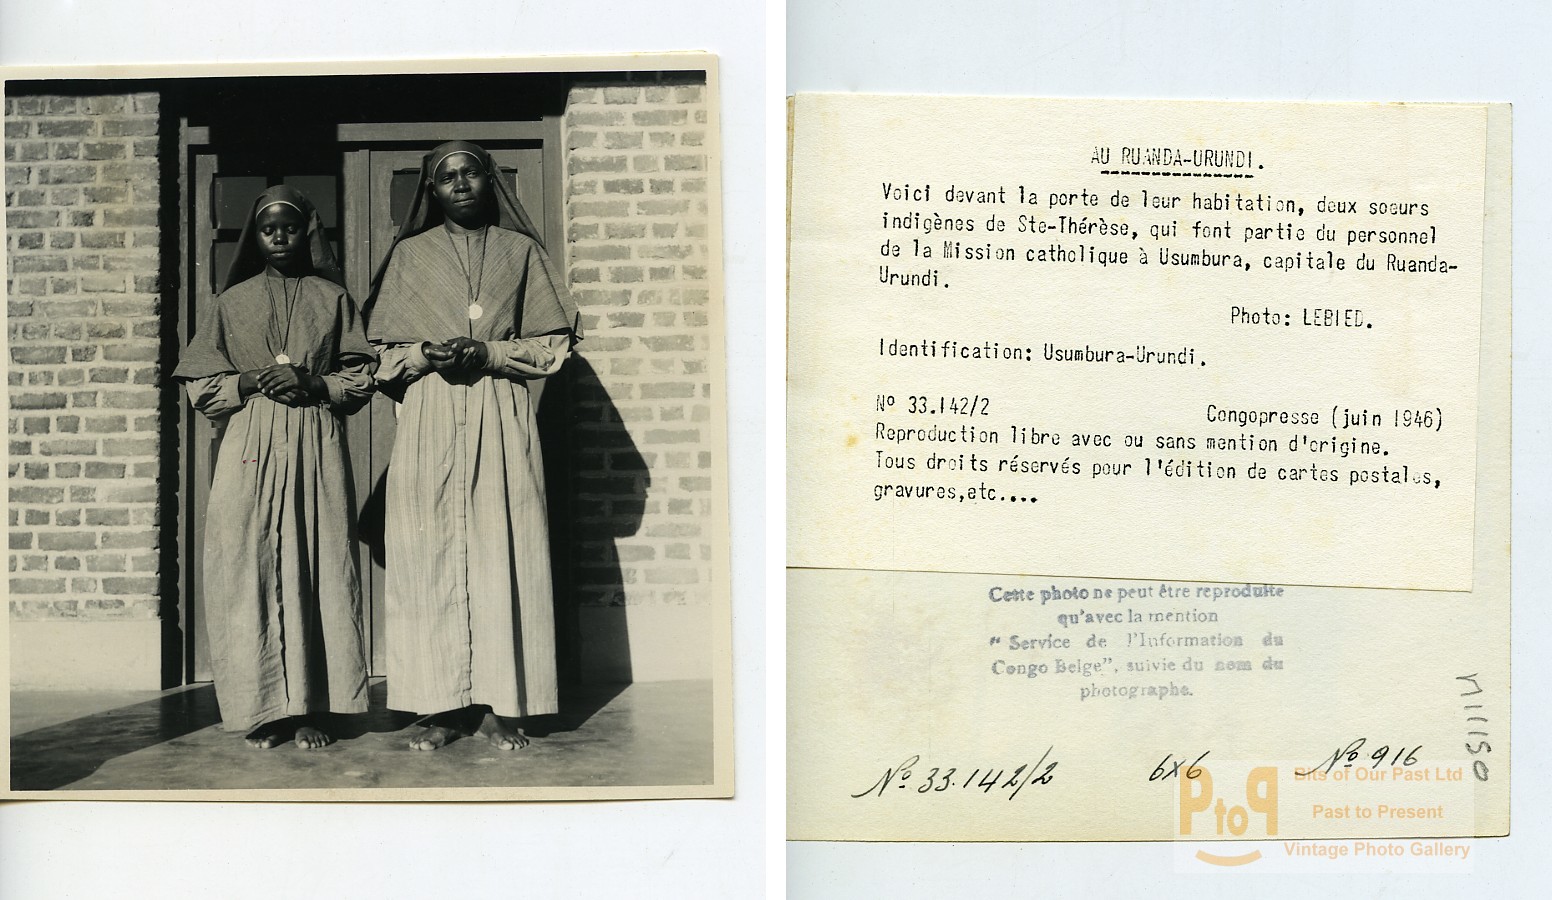 AU RUANDA-URUNDI.
Voici devant la porte de leur habitation, deux soeurs
indigènes de Ste-Thérèse, qui font partie du personnel
de la Mission catholique à Usumbura, capitale du Ruanda-
Urundi.
Photo: LEBIED.
Identification: Usumbura-Urundi.
Nº 33.142/2
Congopresse (juin 1946)
Reproduction libre avec ou sans mention d'origine.
Tous droits réservés pour l'édition de cartes postales,
gravures,etc....
Cette photo ne peut être reproduite
qu'avec la mention
" Service de l'Information du
Congo Belge", suivie du nom du
photographe.
Nº 33.142/2
6x6
Nº 916
PtoP
Bits of Our Past Ltd
Past to Present
Vintage Photo Gallery